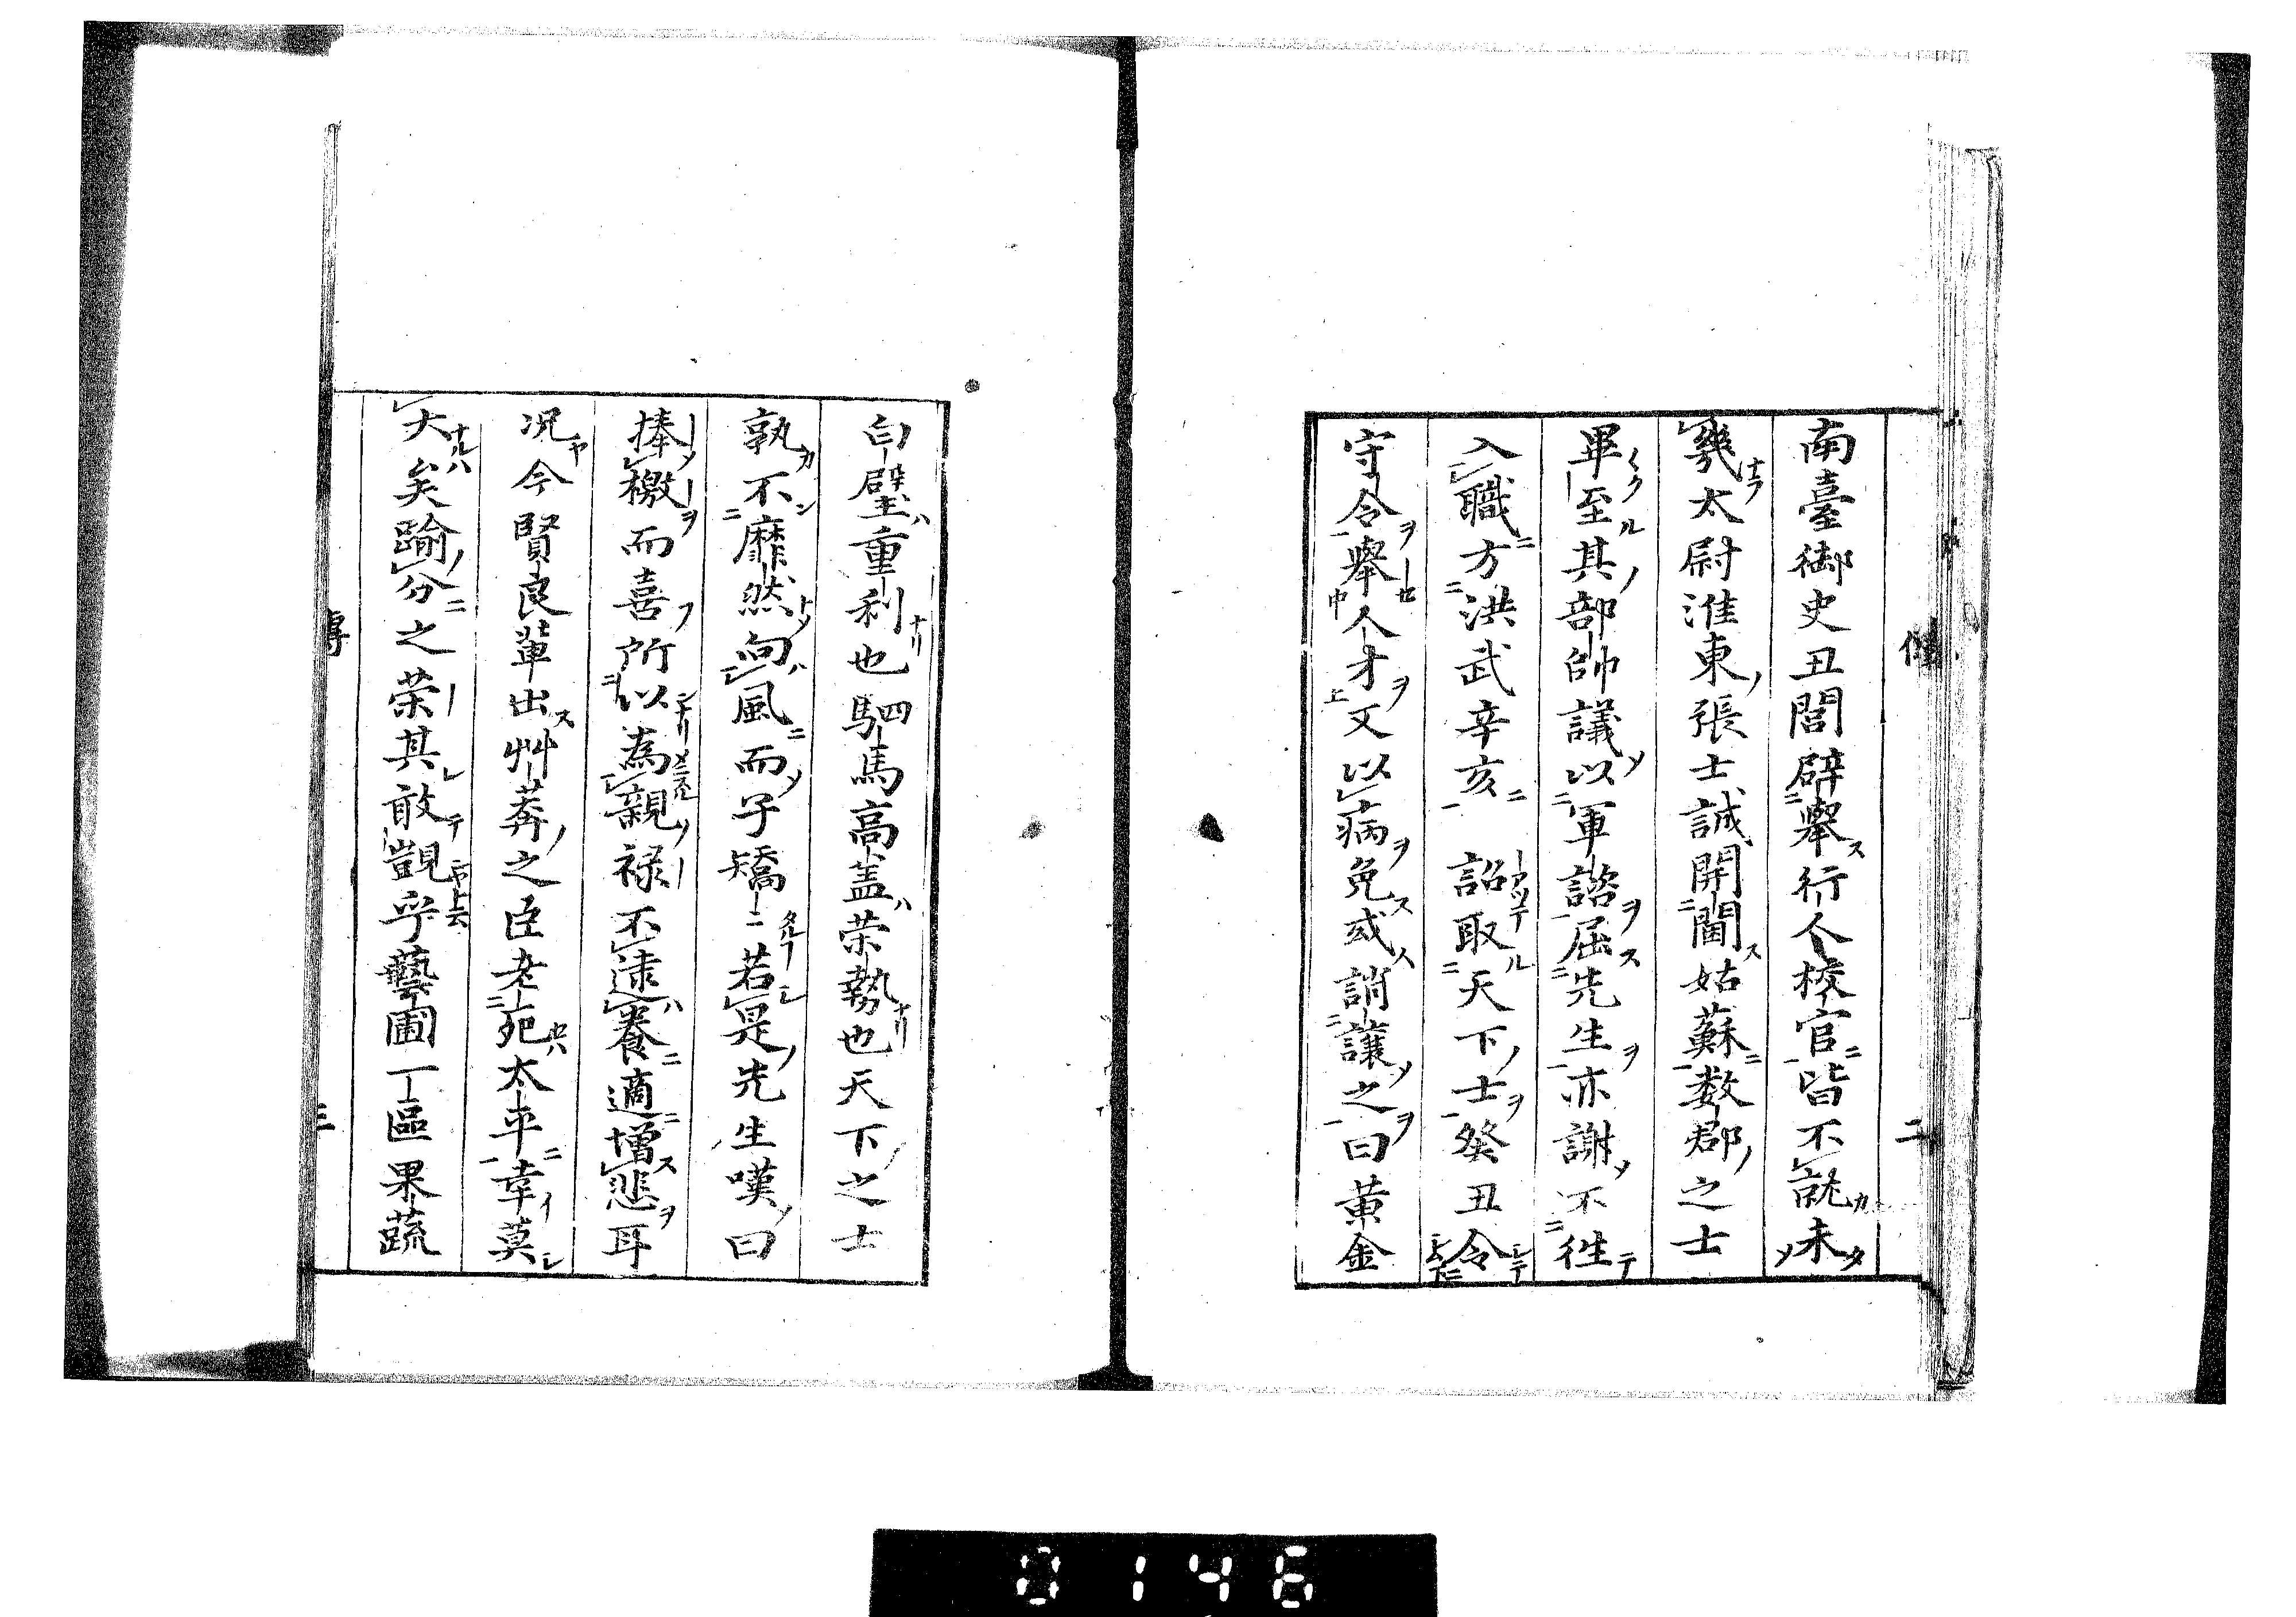 南臺御史丑閭辟舉行人校官皆不就未
幾太尉淮東張士誠開閫姑蘇数郡之士
畢至其部帥議以軍諮屈先生亦謝不徃
入職方洪武辛亥 詔取天下士癸丑令
守令舉人才又以病免或誚讓之曰黄金
白璧重利也駟馬高盖荣勢也天下之士
孰不靡然向風而子矯〻若是先生嘆曰
捧檄而喜所以為親禄不逮養適增悲耳
况今賢良輩出艸莽之臣老死太平幸莫
大矣踰分之荣其敢覬乎藝圃一區果蔬
傳
二
三
0146